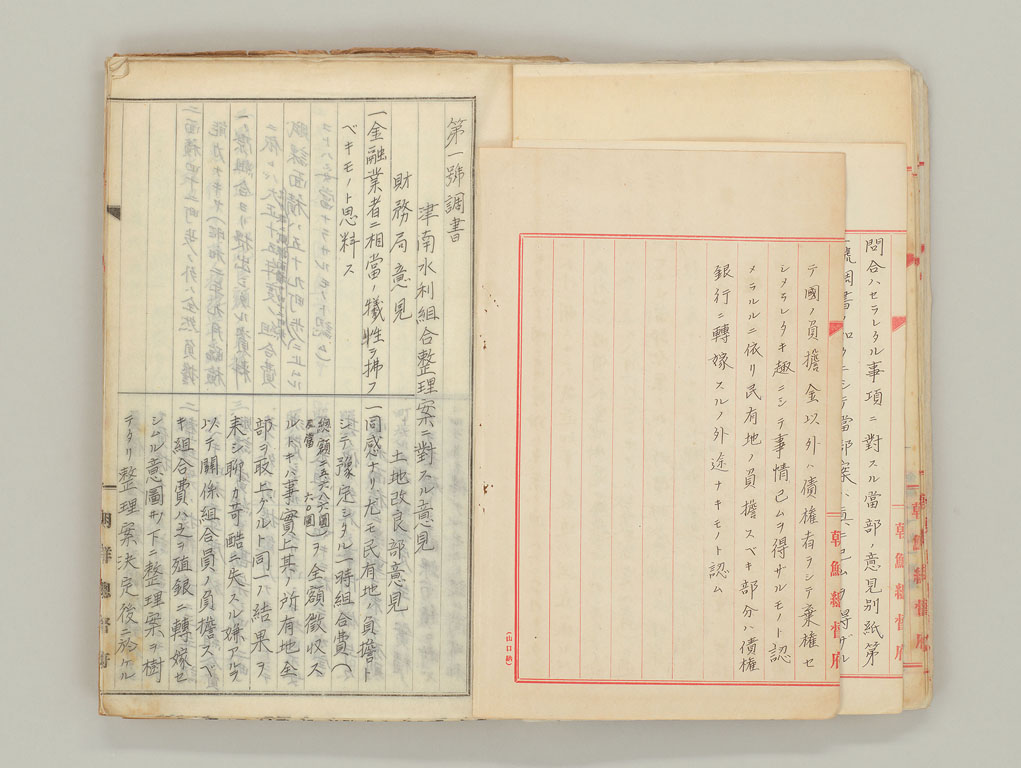 問合ハセラレタル事項ニ對スル當部ノ意見別紙第
朝鮮總督府
テ國ノ負擔金以外ハ債權者ラシテ棄權セ
シメラレタキ趣ニシテ事情已ムヲ得サルモノト認
メラルルニ依リ民有地ノ負擔スベキ部分ハ債權
銀行ニ轉嫁スルノ外途ナキモノト認ム
朝鮮總督府
(山口納)
第一號調書
津南水利組合整理案ニ對スル意見
財務局意見
一金融業者ニ相當ノ犠牲ヲ拂フ
ベキモノト思料ス
土地改良部意見
一同感ナリ尤モ民有地ノ負擔ト
シテ豫定シタル一時組合費(
總額二五六八六圓
反當 六〇圓)ヲ全額徴収ス
ルトキハ事實上其ノ所有地全
部ヲ取上グルト同一ノ結果ヲ
来シ聊カ苛酷ニ失スル嫌アルヲ
以テ關係組合員ノ負擔スベ
キ組合費ハ之ヲ殖銀ニ轉嫁セ
シムル意圖ノ下ニ整理案ヲ樹
テタリ整理案決定後ニ於ケル
朝鮮總督府